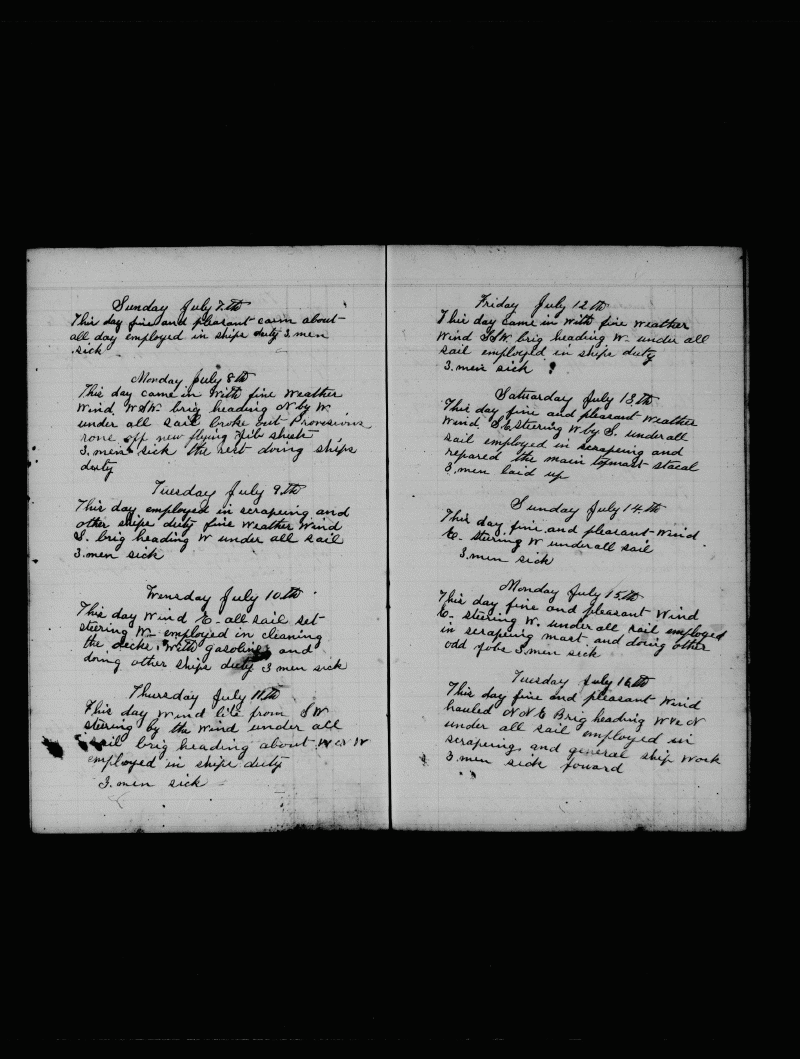 Sunday July 7.th
This day fine and pleasant caim about
all day employed in ships duty 3 men
sick
Monday July 8th
This day came in with fine weather
Wind W.S.W. brig heading N by W.
under all sail broke out Provesions
rove off new flying Jib sheets
3. men sick the rest doing ships
duty
Tuesday July 9.th
This day employed in scrapeing and
other ships duty fine weather wind
S. brig heading W under all sail
3. men sick
Wensday July 10.th
This day Wind E- all sail set
steering W- employed in cleaning
the decks with gasoline and
doing other ships duty 3 men sick
Thursday July 11.th
This day Wind lite from SW
steering by the wind under all
sail brig heading about W N W
employed in ships duty
3. men sick
Friday July 12.th
This day came in with fine weather
Wind SSW. brig heading W. under all
sail employed in ships duty
3. men sick
Satuarday July 13.th
This day fine and pleasant weather
Wind S.E. steering W by S. under all
sail employed in scrapeing and
repared the main topmast
3. men laid up
Sunday July 14.th
This day fine and pleasant Wind
E- stering W under all sail
3. men sick
Monday July 15.th
This day fine and pleasant Wind
E- steering W. under all sail employed
in scrapeing mast and doing other
odd jobs 3. men sick
Tuesday July 16.th
This day fine and pleasant Wind
hauled N N E Brig heading W N
under all sail employed in
scrapering and general ship work
3. men sick foward